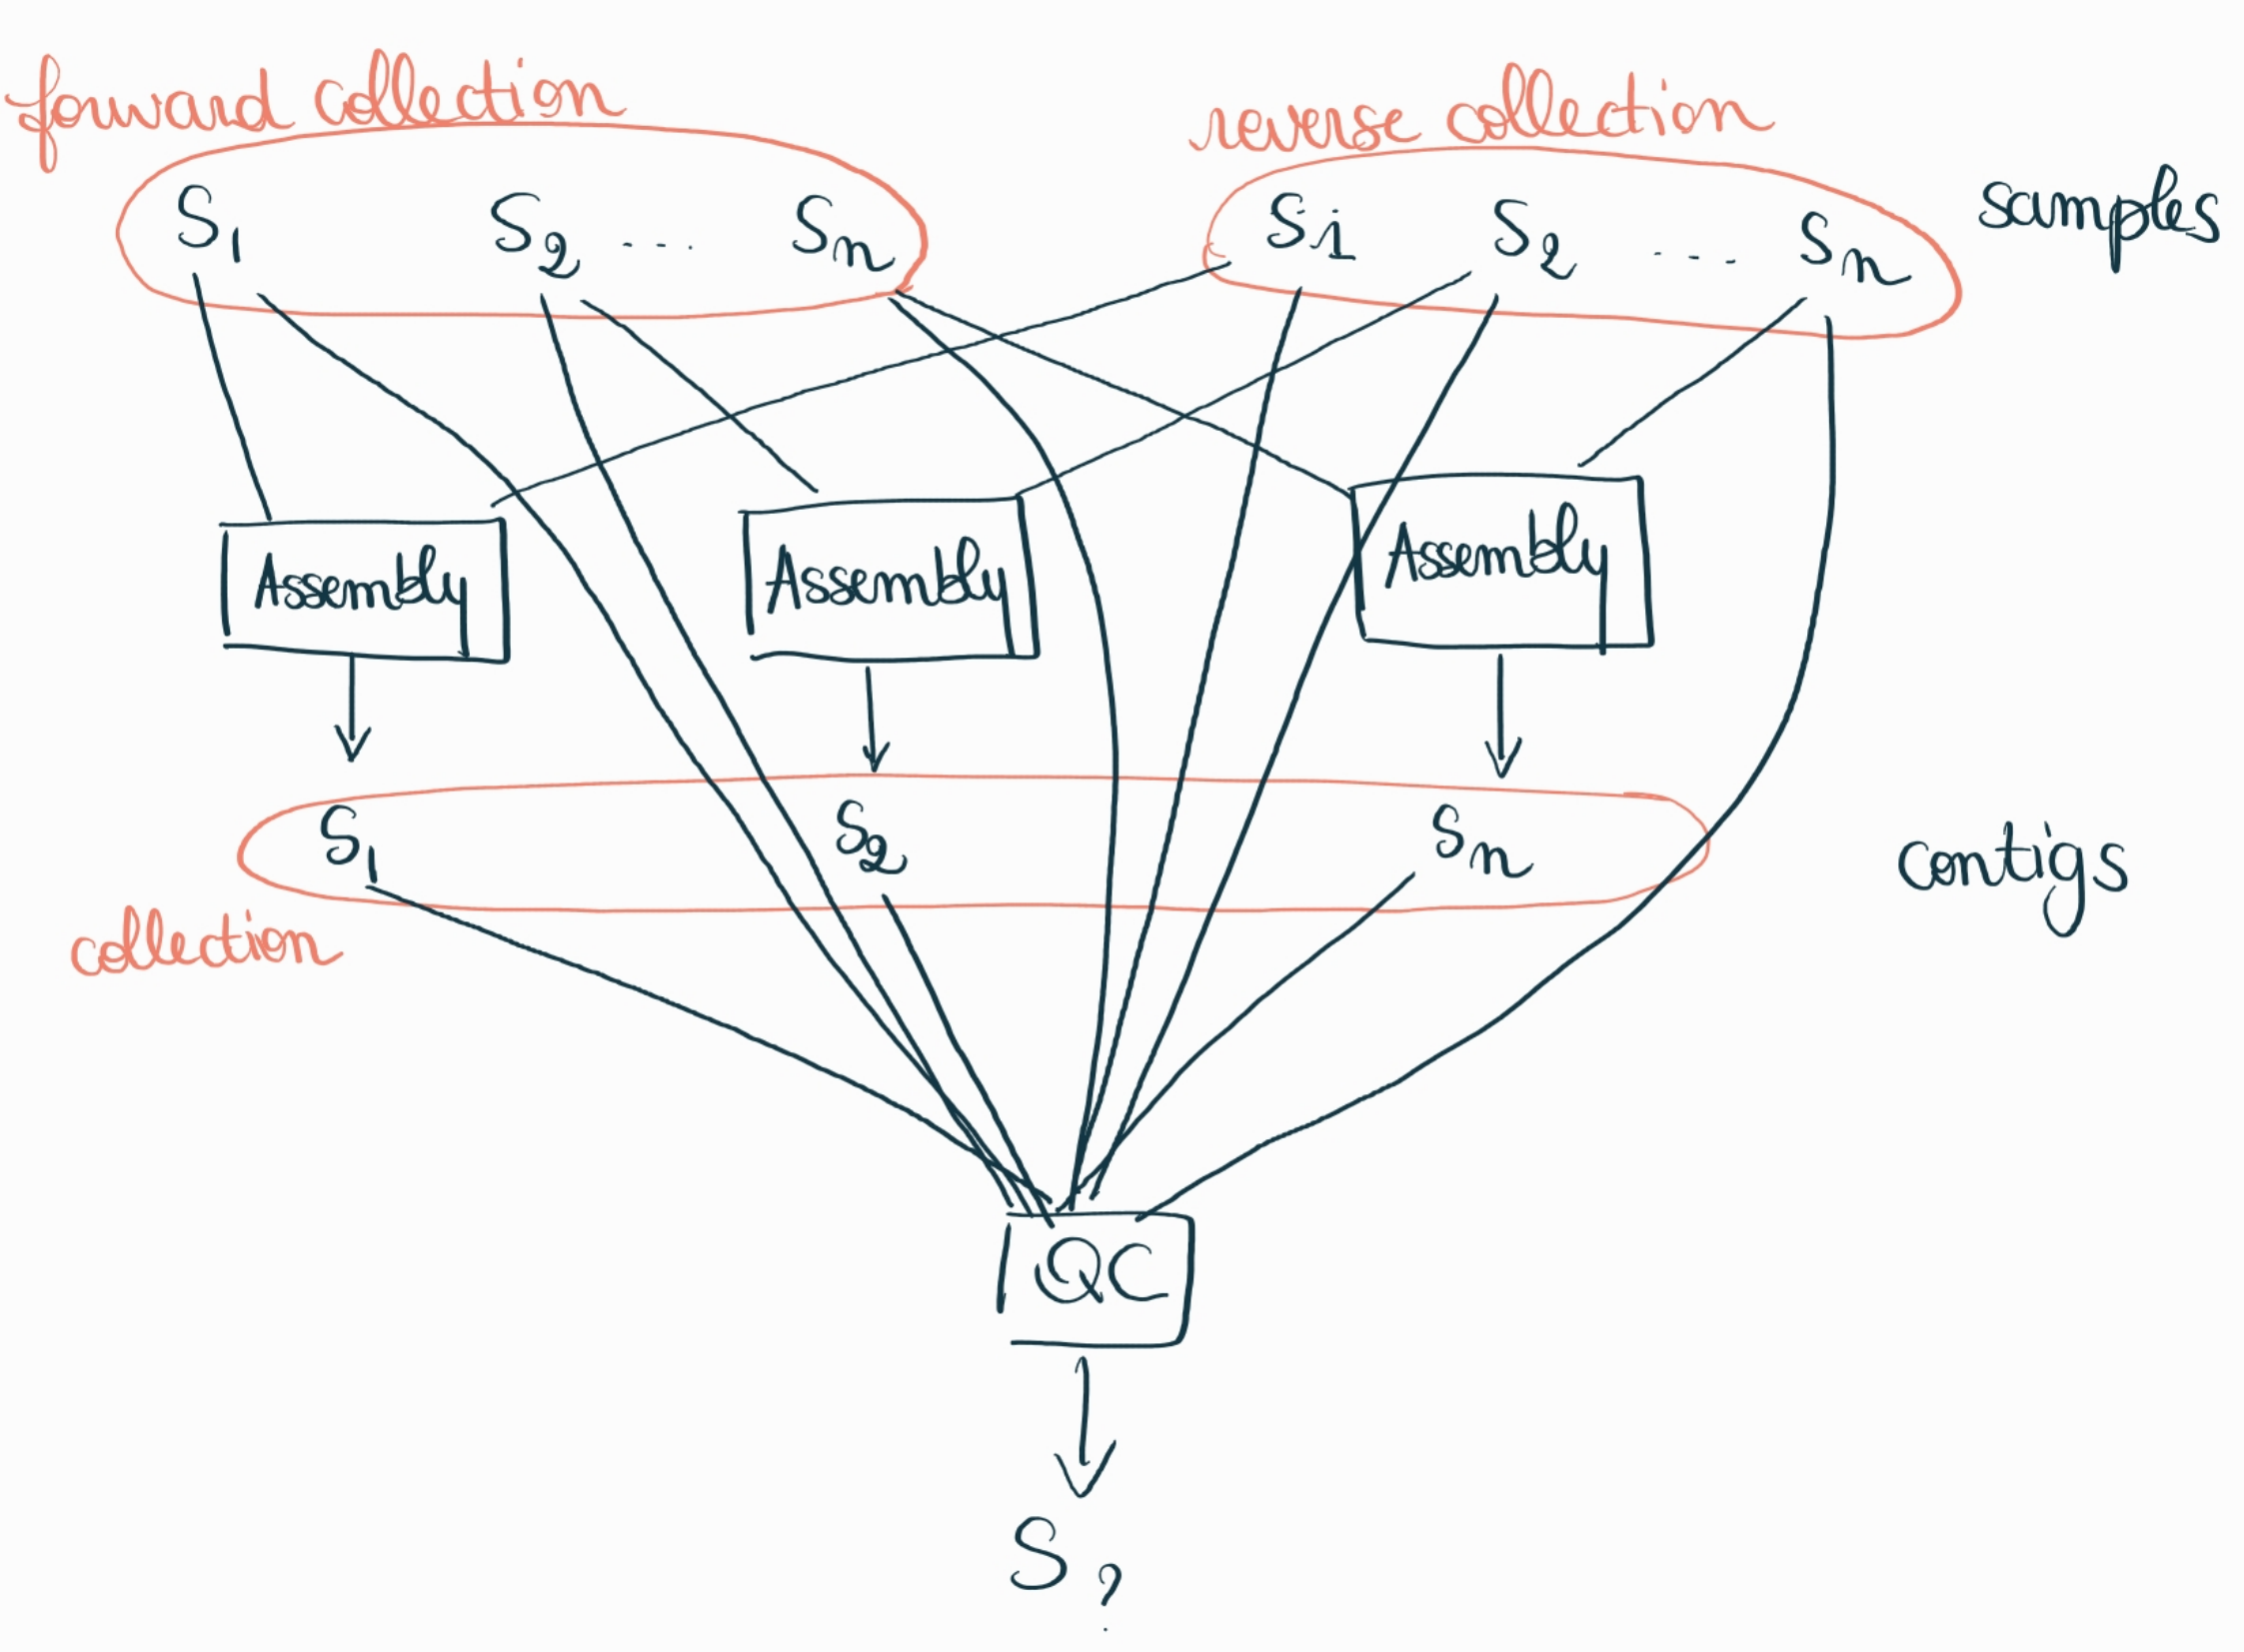 forward collection
reverse collection
S1 S2 ... Sn
S1 S2 ... Sn
samples
Assembly
Assembly
Assembly
S1
S2
Sn
contigs
collection
QC
S?